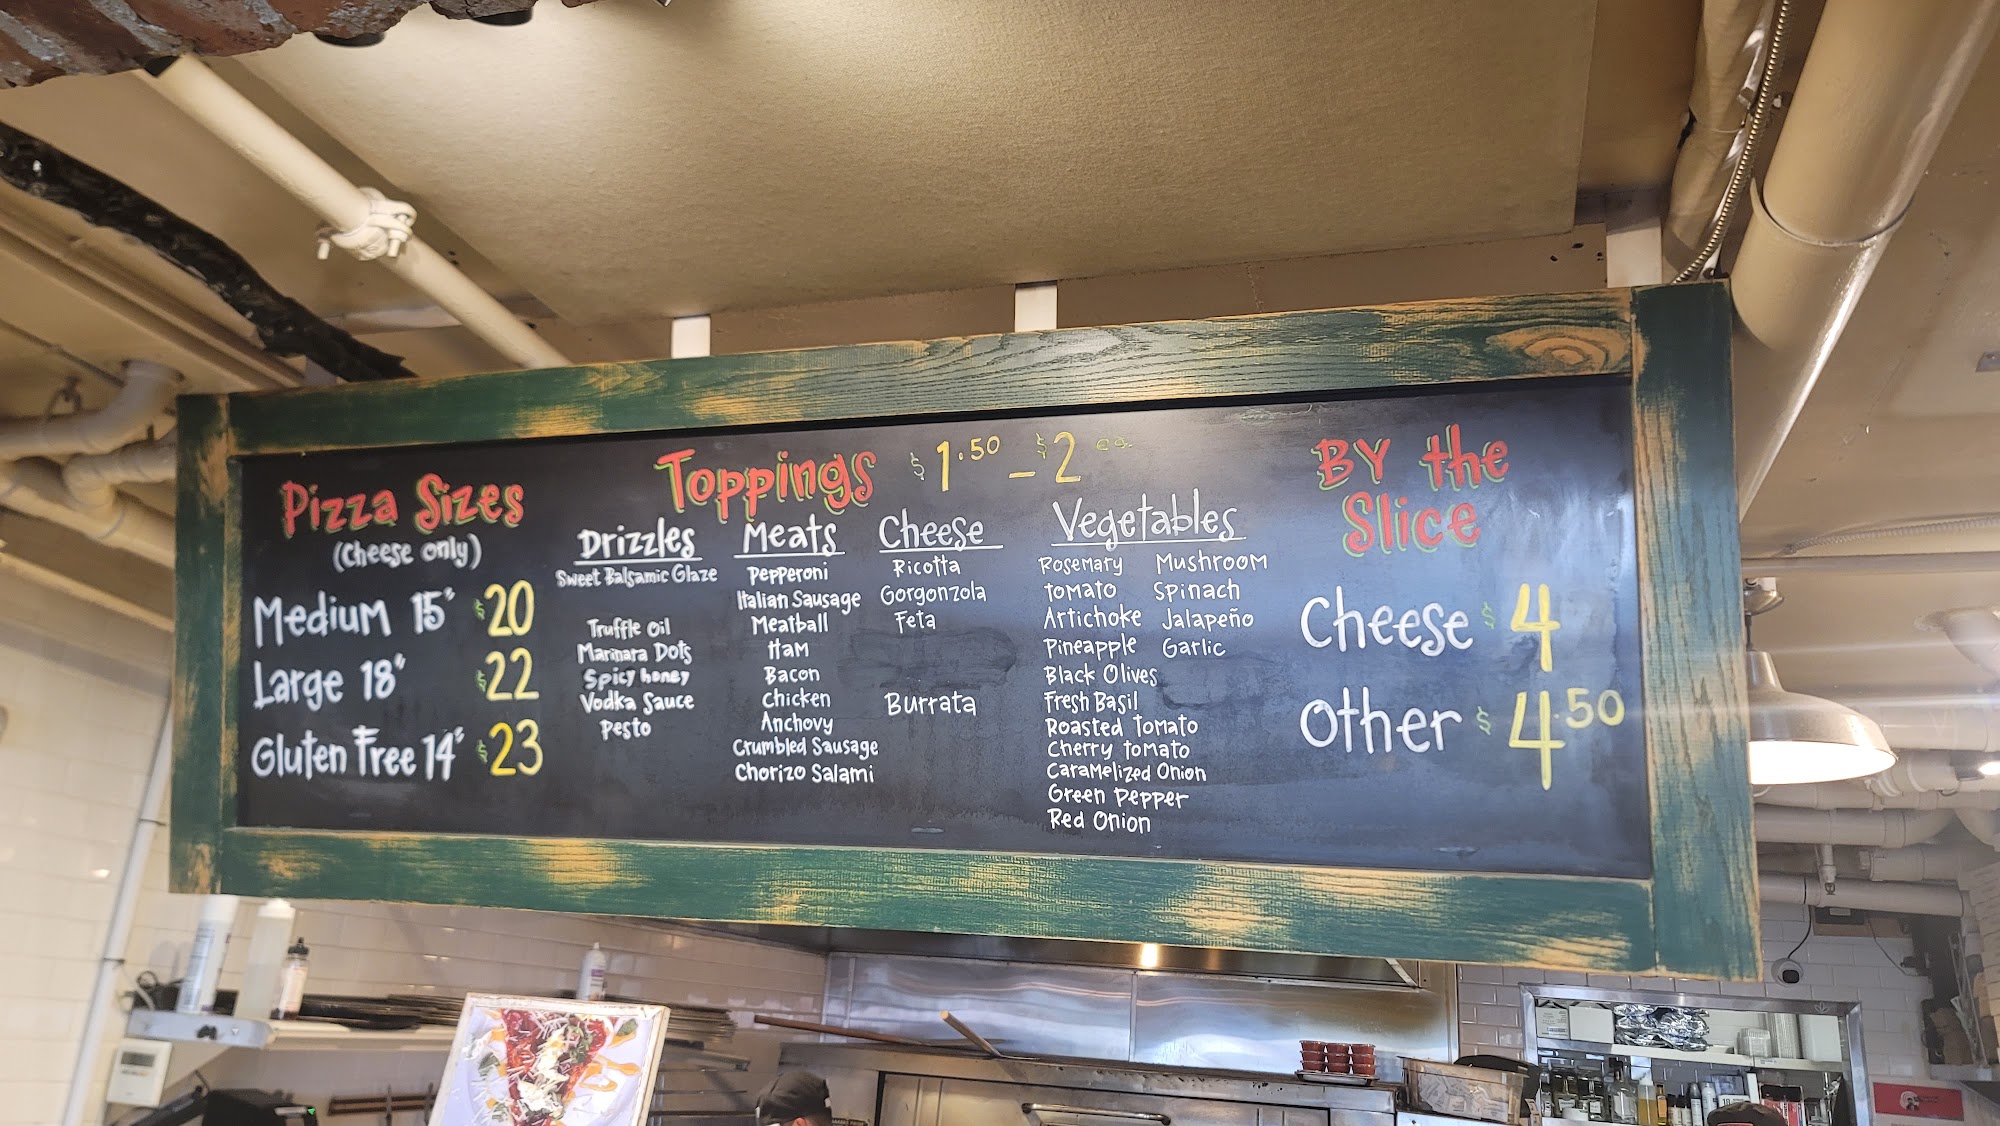 Pizza Sizes
(Cheese only)
Medium 15" $20
Large 18" $22
Gluten Free 14" $23
Toppings $1.50 - $2 ea.
Drizzles
Sweet Balsamic Glaze
Truffle Oil
Marinara Dots
Spicy honey
Vodka Sauce
Pesto
Meats
Pepperoni
Italian Sausage
Meatball
Ham
Bacon
Chicken
Anchovy
Crumbled Sausage
Chorizo Salami
Cheese
Ricotta
Gorgonzola
Feta
Burrata
Vegetables
Rosemary
Tomato
Artichoke
Pineapple
Black Olives
Fresh Basil
Roasted Tomato
Cherry Tomato
Caramelized Onion
Green Pepper
Red Onion
Mushroom
Spinach
Jalapeño
Garlic
BY the
Slice
Cheese $4
Other $4.50